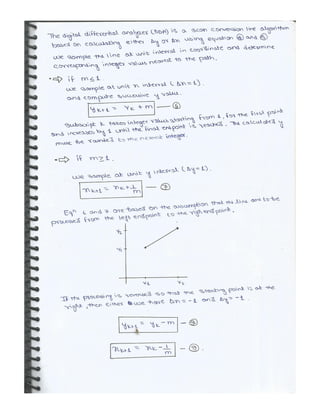 The digital differential analyzer (DDA) is a scan conversion line algorithm
based on calculating either Δy or Δx using equation ④ and ⑤
we sample the line at unit interval in coordinate and determine
corresponding integer values nearest to the path.
•⇒ if m≤1
we sample at unit x interval (Δx=1).
and compute successive y value.
yk+1 = yk + m — ⑥
Subscript k takes integer values starting from 1, for the first point
and increases by 1 until the final endpoint is reached. The calculated y
must be rounded to the nearest integer.
•⇒ if m≥1.
we sample at unit y interval (Δy=1).
xk+1 = xk + 1/m — ⑦
Eqn 6 and 7 are based on the assumption that the line are to be
processed from the left endpoint to the right endpoint.
y2
y1
x1 x2
If the processing is reversed so that the starting point is at the
right, then either we have Δx = -1 and Δy = -1.
yk+1 = yk - m — ⑧
xk+1 = xk - 1/m — ⑨.